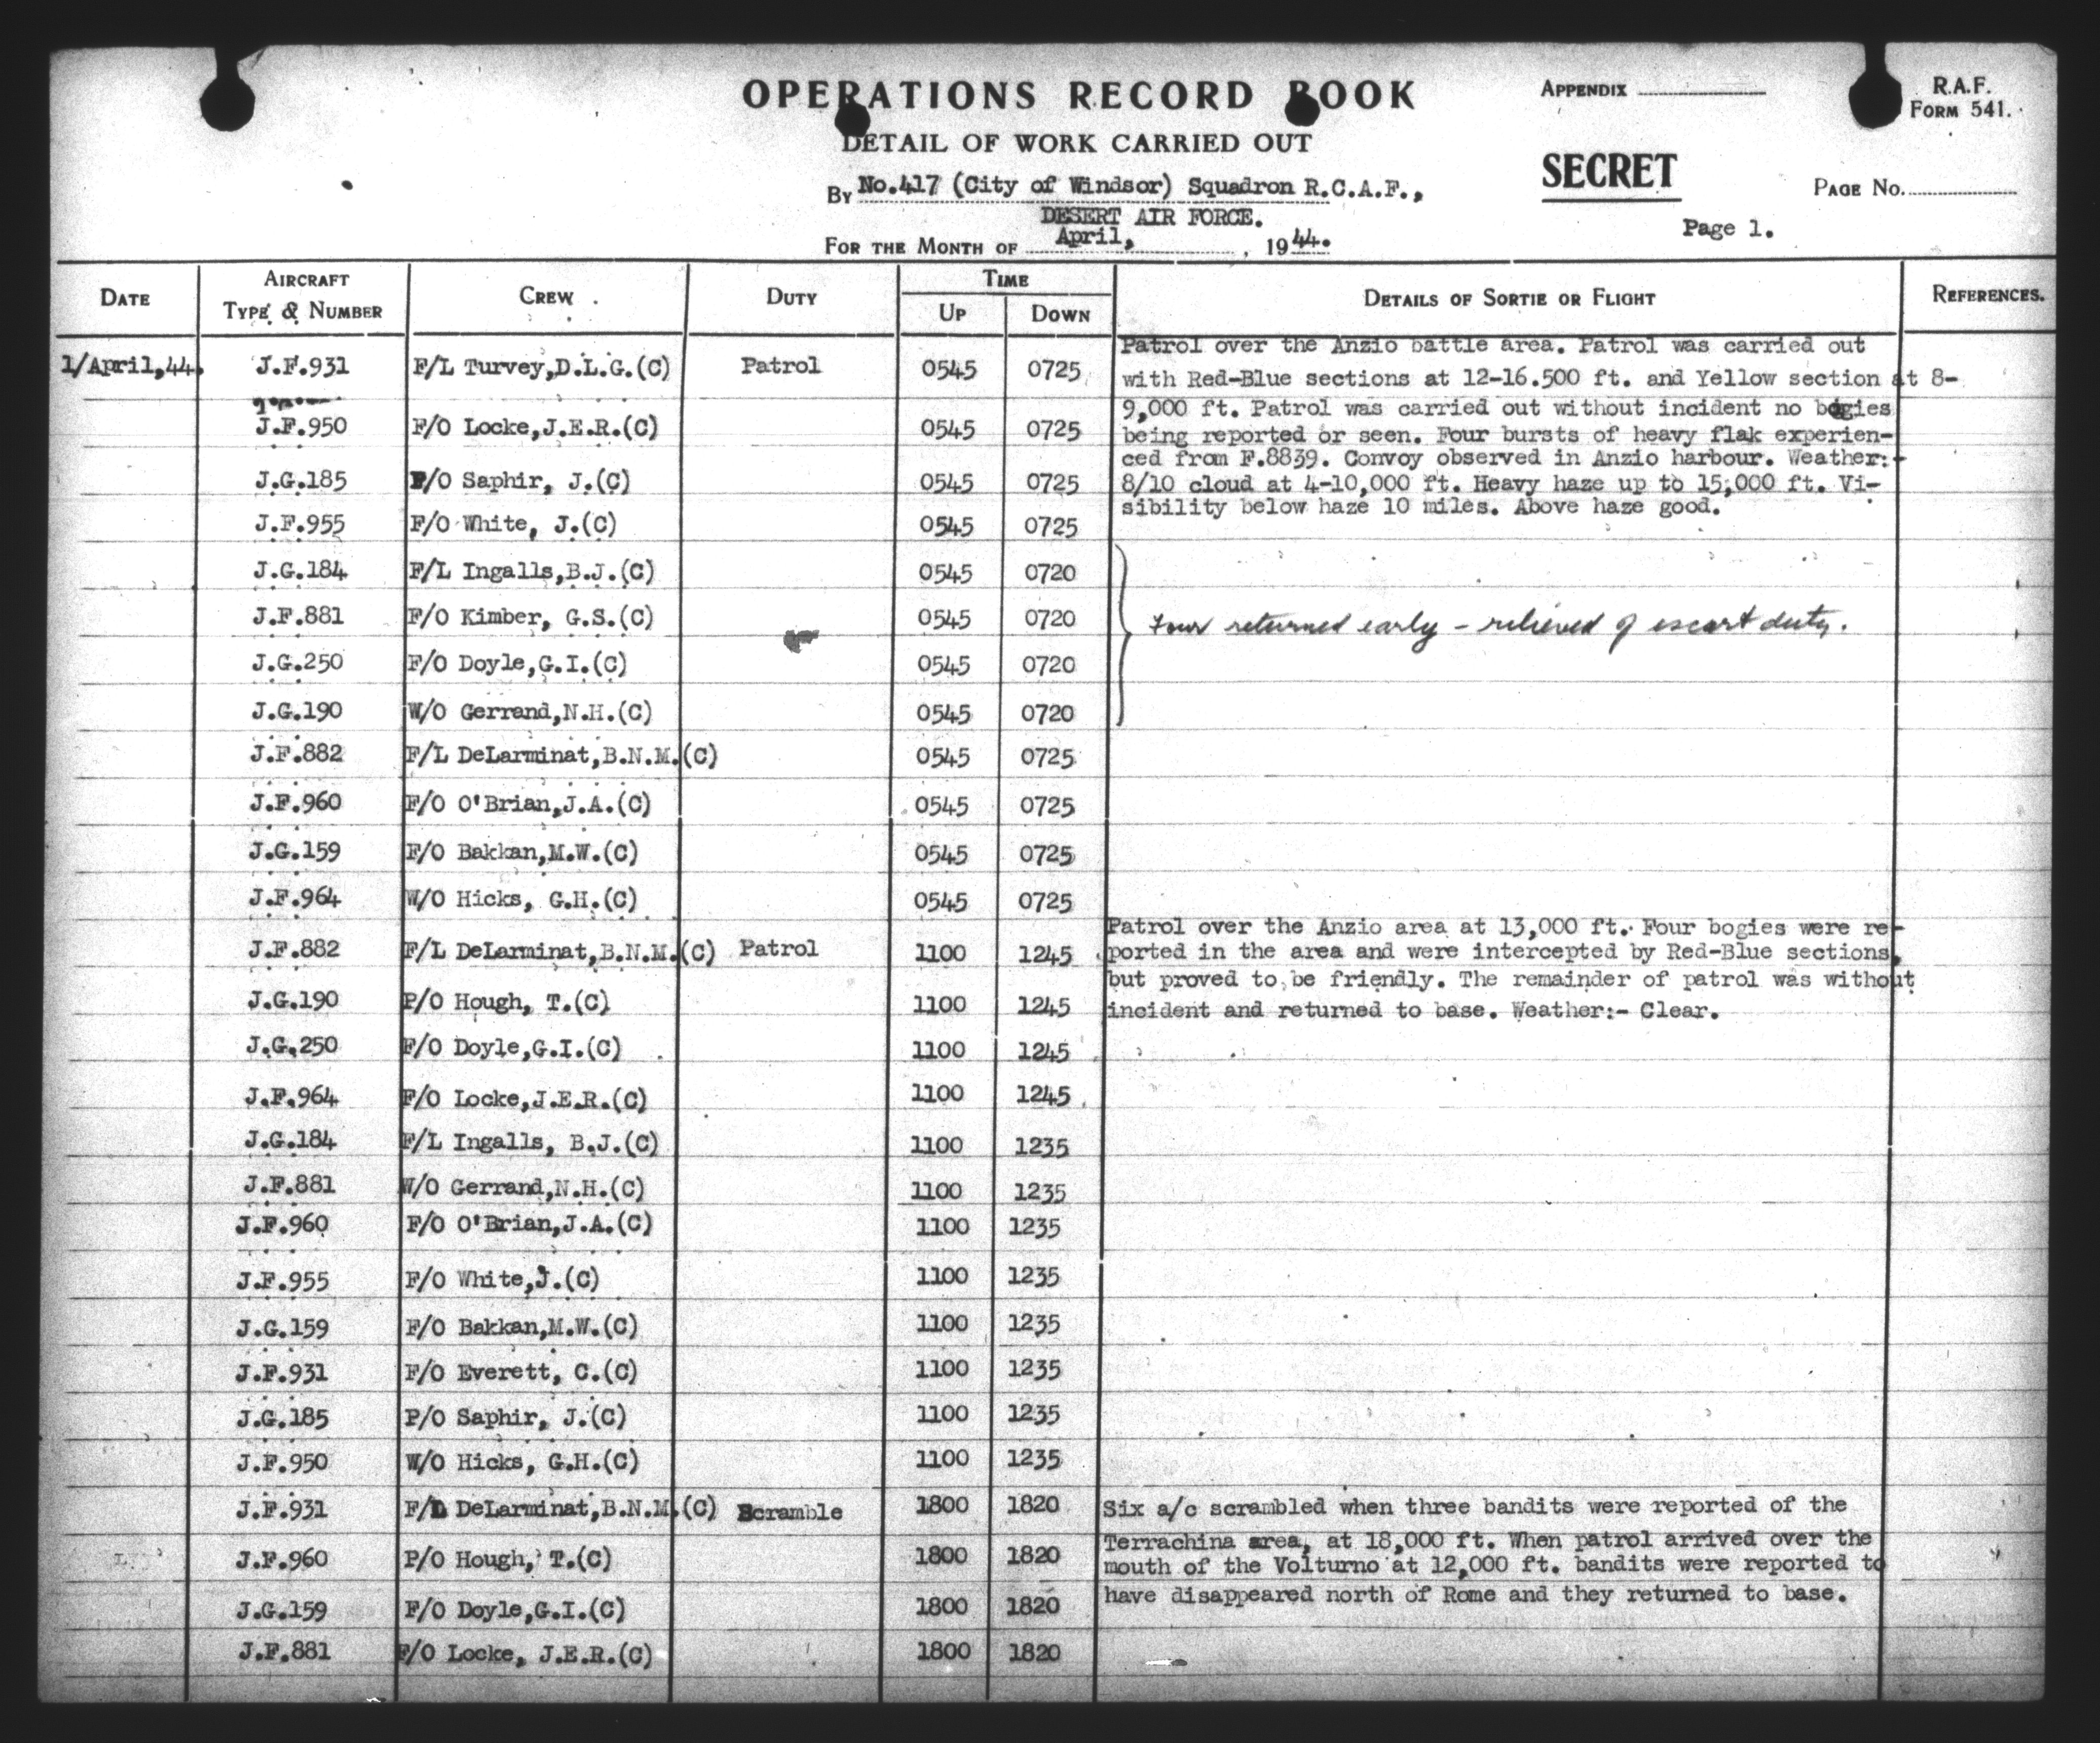 OPERATIONS RECORD BOOK
APPENDIX
R.A.F.
FORM 541.
DETAIL OF WORK CARRIED OUT
SECRET
By No.417 (City of Windsor) Squadron R.C.A.F.,
PAGE No.
DESERT AIR FORCE.
Page 1.
FOR THE MONTH OF April, , 1944.
DATE
AIRCRAFT
TYPE & NUMBER
CREW
DUTY
TIME
UP
DOWN
DETAILS OF SORTIE OR FLIGHT
REFERENCES.
1/April,44. J.F.931 F/L Turvey,D.L.G.(C) Patrol 0545 0725
J.F.950 F/O Locke,J.E.R.(C) 0545 0725
J.G.185 P/O Saphir, J.(C) 0545 0725
J.F.955 F/O White, J.(C) 0545 0725
Patrol over the Anzio battle area. Patrol was carried out
with Red-Blue sections at 12-16.500 ft. and Yellow section at 8-
9,000 ft. Patrol was carried out without incident no bogies
being reported or seen. Four bursts of heavy flak experien-
ced from F.8839. Convoy observed in Anzio harbour. Weather:-
8/10 cloud at 4-10,000 ft. Heavy haze up to 15,000 ft. Vi-
sibility below haze 10 miles. Above haze good.
J.G.184 F/L Ingalls,B.J.(C) 0545 0720
J.F.881 F/O Kimber, G.S.(C) 0545 0720
Four returned early - relieved of escort duty.
J.G.250 F/O Doyle,G.I.(C) 0545 0720
J.G.190 W/O Gerrand,N.H.(C) 0545 0720
J.F.882 F/L DeLarminat,B.N.M.(C) 0545 0725
J.F.960 F/O O'Brian,J.A.(C) 0545 0725
J.G.159 F/O Bakkan,M.W.(C) 0545 0725
J.F.964 W/O Hicks, G.H.(C) 0545 0725
J.F.882 F/L DeLarminat,B.N.M.(C) Patrol 1100 1245
J.G.190 P/O Hough, T.(C) 1100 1245
Patrol over the Anzio area at 13,000 ft. Four bogies were re-
ported in the area and were intercepted by Red-Blue sections,
but proved to be friendly. The remainder of patrol was without
incident and returned to base. Weather:- Clear.
J.G.250 F/O Doyle,G.I.(C) 1100 1245
J.F.964 F/O Locke,J.E.R.(C) 1100 1245
J.G.184 F/L Ingalls, B.J.(C) 1100 1235
J.F.881 W/O Gerrand,N.H.(C) 1100 1235
J.F.960 F/O O'Brian,J.A.(C) 1100 1235
J.F.955 F/O White,J.(C) 1100 1235
J.G.159 F/O Bakkan,M.W.(C) 1100 1235
J.F.931 F/O Everett, C.(C) 1100 1235
J.G.185 P/O Saphir, J.(C) 1100 1235
J.F.950 W/O Hicks, G.H.(C) 1100 1235
J.F.931 F/L DeLarminat,B.N.M.(C) Scramble 1800 1820
J.F.960 P/O Hough, T.(C) 1800 1820
J.G.159 F/O Doyle,G.I.(C) 1800 1820
J.F.881 F/O Locke, J.E.R.(C) 1800 1820
Six a/c scrambled when three bandits were reported of the
Terrachina area, at 18,000 ft. When patrol arrived over the
mouth of the Volturno at 12,000 ft. bandits were reported to
have disappeared north of Rome and they returned to base.